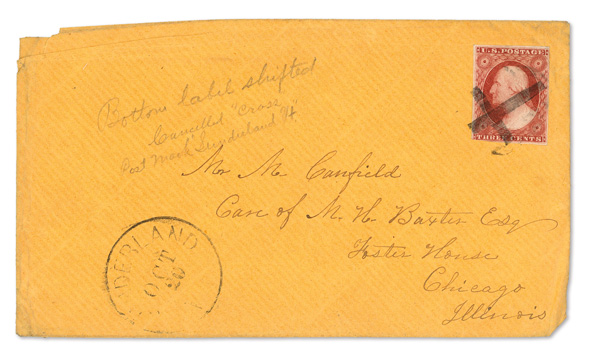 U.S. POSTAGE
THREE CENTS
Bottom label shifted
Cancelled "Cross"
Post Mark Sunderland Vt.
Mr M. Canfield
Care of M. H. Baxter Esq
Foster House
Chicago
Illinois
DERLAND
OCT